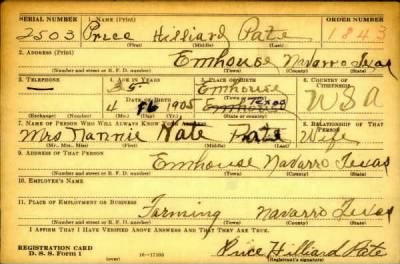 SERIAL NUMBER 1. NAME (Print) ORDER NUMBER
2503 Price Hilliard Pate 1843
(First) (Middle) (Last)
2. ADDRESS (Print)
Emhouse Navarro Texas
(Number and street or R. F. D. number) (Town) (County) (State)
3. TELEPHONE 4. AGE IN YEARS 5. PLACE OF BIRTH 6. COUNTRY OF CITIZENSHIP
— 35 Emhouse
DATE OF BIRTH (Town or county) USA
4 1905 Texas
(Exchange) (Number) (Mo.) (Day) (Yr.) (State or country)
7. NAME OF PERSON WHO WILL ALWAYS KNOW YOUR ADDRESS 8. RELATIONSHIP OF THAT PERSON
Mrs Nannie Pate Wife
(Mr., Mrs., Miss) (First) (Middle) (Last)
9. ADDRESS OF THAT PERSON
Emhouse Navarro Texas
(Number and street or R. F. D. number) (Town) (County) (State)
10. EMPLOYER'S NAME
11. PLACE OF EMPLOYMENT OR BUSINESS
Farming Navarro Texas
(Number and street or R. F. D. number) (Town) (County) (State)
I AFFIRM THAT I HAVE VERIFIED ABOVE ANSWERS AND THAT THEY ARE TRUE.
REGISTRATION CARD
D. S. S. FORM 1 Price Hilliard Pate
(Registrant's signature)